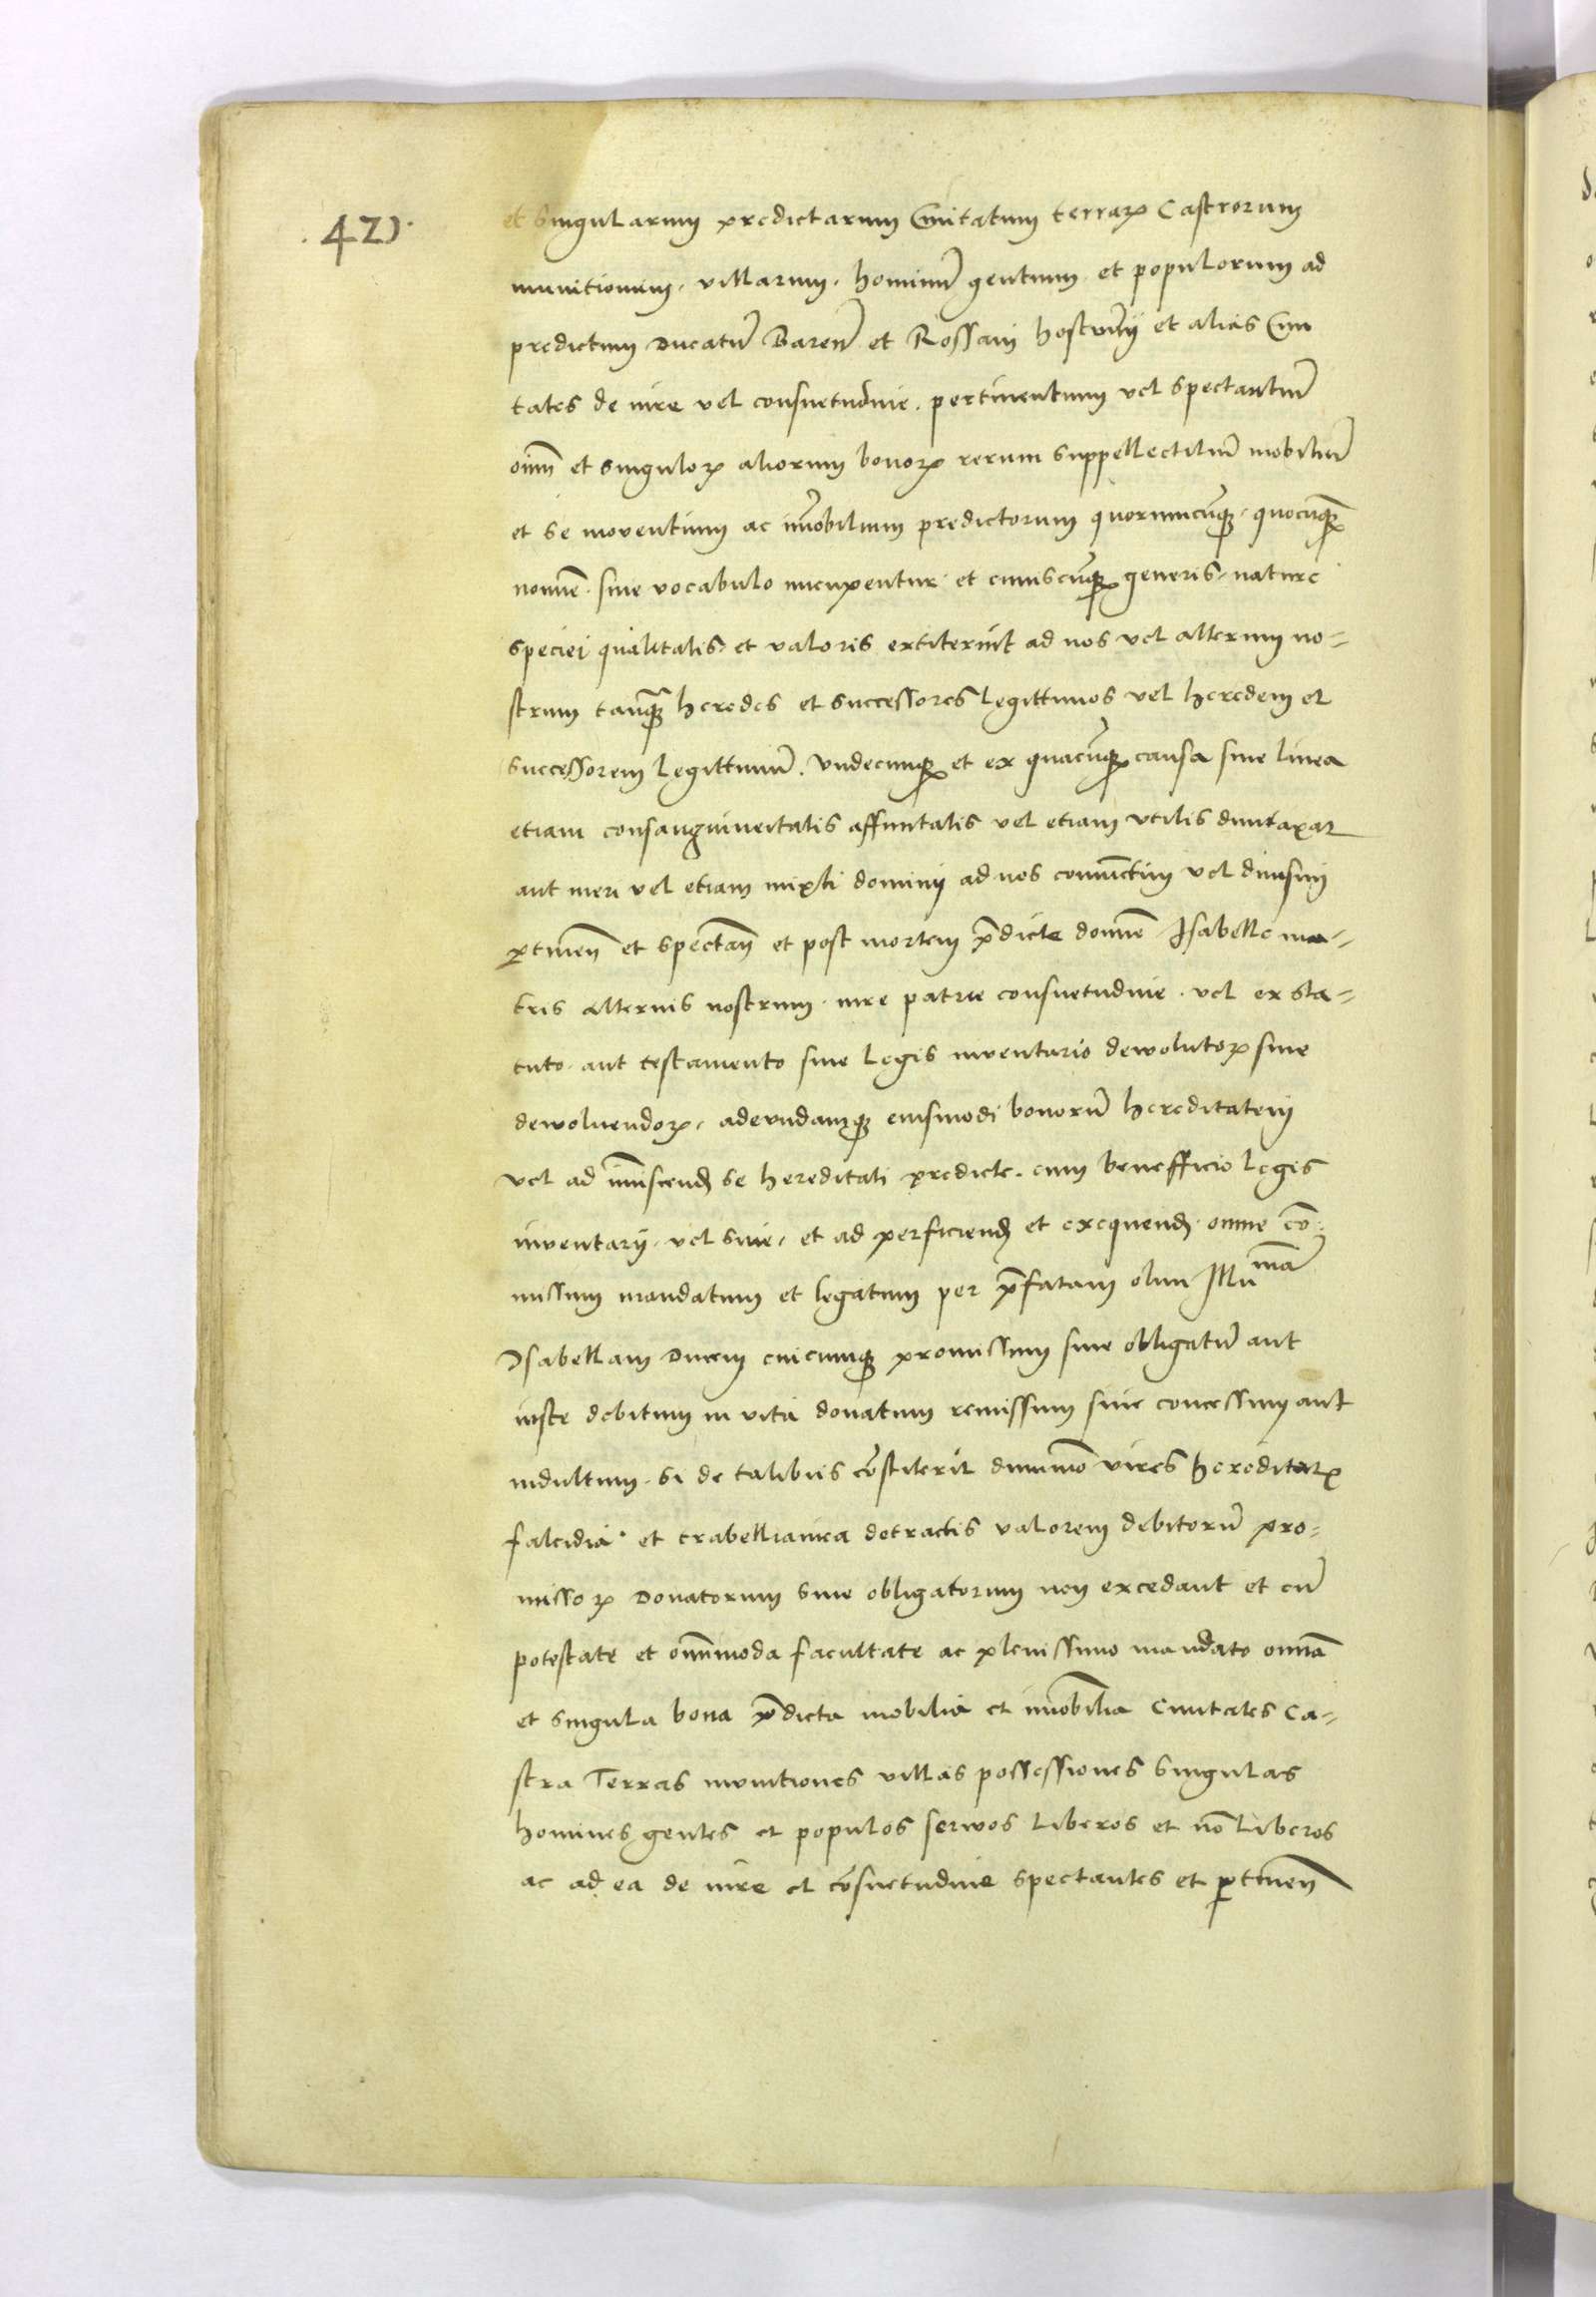 .421.
et singularum predictarum Civitatum terrarꝝ Castrorum
munitionum, villarum, hominũ gentium et populorum ad
predictum Ducatũ Baren̄ et Rossani Hostunij et alias Civi
tates de iure vel consuetudine. pertinentium vel spectantiũ
oĩm et singuloꝝ aliorum bonoꝝ rerum suppellectiliũ mobiliũ
et se moventium ac im̄obilium predictorum quorumcũqꝫ, quocũqꝫ
nomĩe. sive vocabulo nucupentur et cuiuscũqꝫ generis, nature
speciei qualitatis, et valoris extiterint ad nos vel alterum no=
strum tanqꝫ heredes et successores legittimos vel heredem et
successorem legittimũ. Undecumqꝫ et ex quacũqꝫ causa sive linea
etiam consanguineitatis affinitatis vel etiam utilis duntaxat
aut meri vel etiam mixti dominij ad nos coniũctim vel divisim
ꝑtineñ et spectañ et post mortem p̄dicte domĩe Isabelle ma=
tris alterius nostrum. iure patrie consuetudine. vel ex sta=
tuto. aut testamento sive legis inventario devolutoꝝ sive
devoluendoꝝ, adeundamqꝫ eiusmodi bonorũ hereditatem
vel ad im̄iscend̄ se hereditati predicte. cum benefficio legis
inventarij. vel sine, et ad perficiend̄ et exequend̄. omne cõ=
missum mandatum et legatum per p̄fatam olim Illumã
Isabellam Ducem cuicumqꝫ promissum sive obligatũ aut
iuste debitum in vita donatum remissum sive concessum aut
indultum. si de talibus cõstiterit dummõ vires hereditatꝝ
falcidia. et trabellianica detractis valorem debitorũ pro=
missoꝝ Donatorum sive obligatorum non excedant et cũ
potestate et omn̄imoda facultate ac plenissimo mandato omĩa
et singula bona p̄dicta mobilia et im̄obilia Civitates Ca=
stra Terras munitiones villas possessiones singulas
homines gentes et populos servos liberos et nõ liberos
ac ad ea de iure et cõsuetudine spectantes et ꝑtineñ